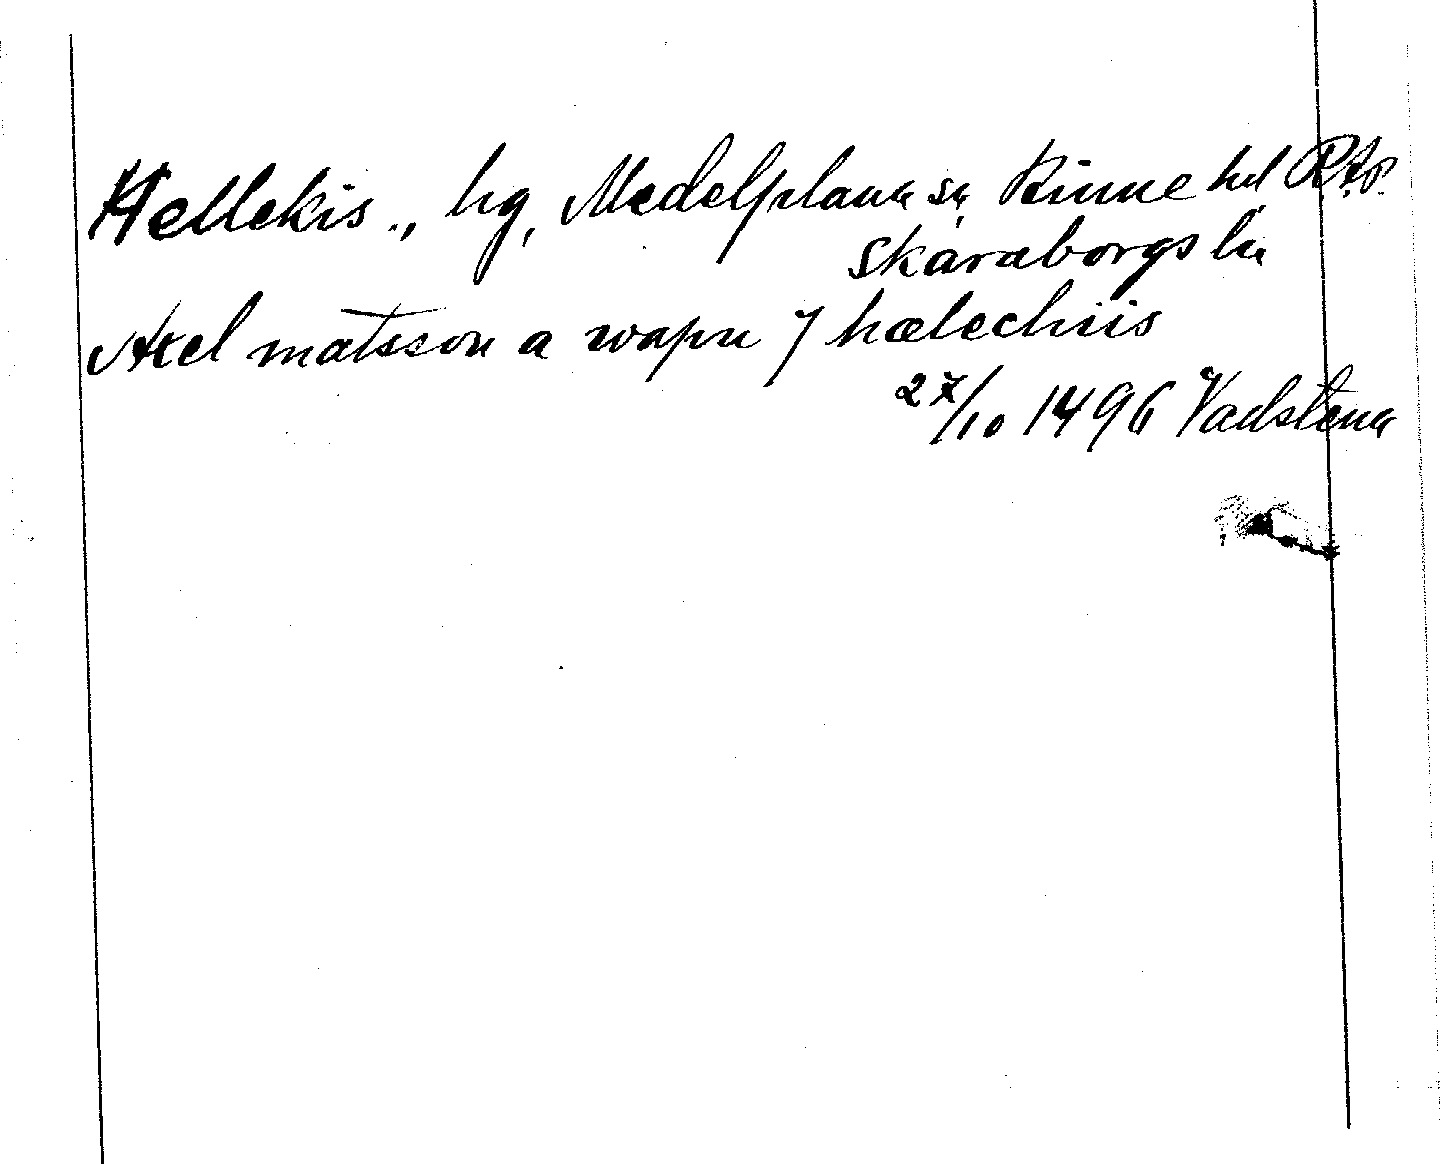 Hellekis., hg, Medelplana sn Kinne hd RAp.
Skaraborgs län
Axel matsson a wapn j hælechiis
27/10 1496 Vadstena